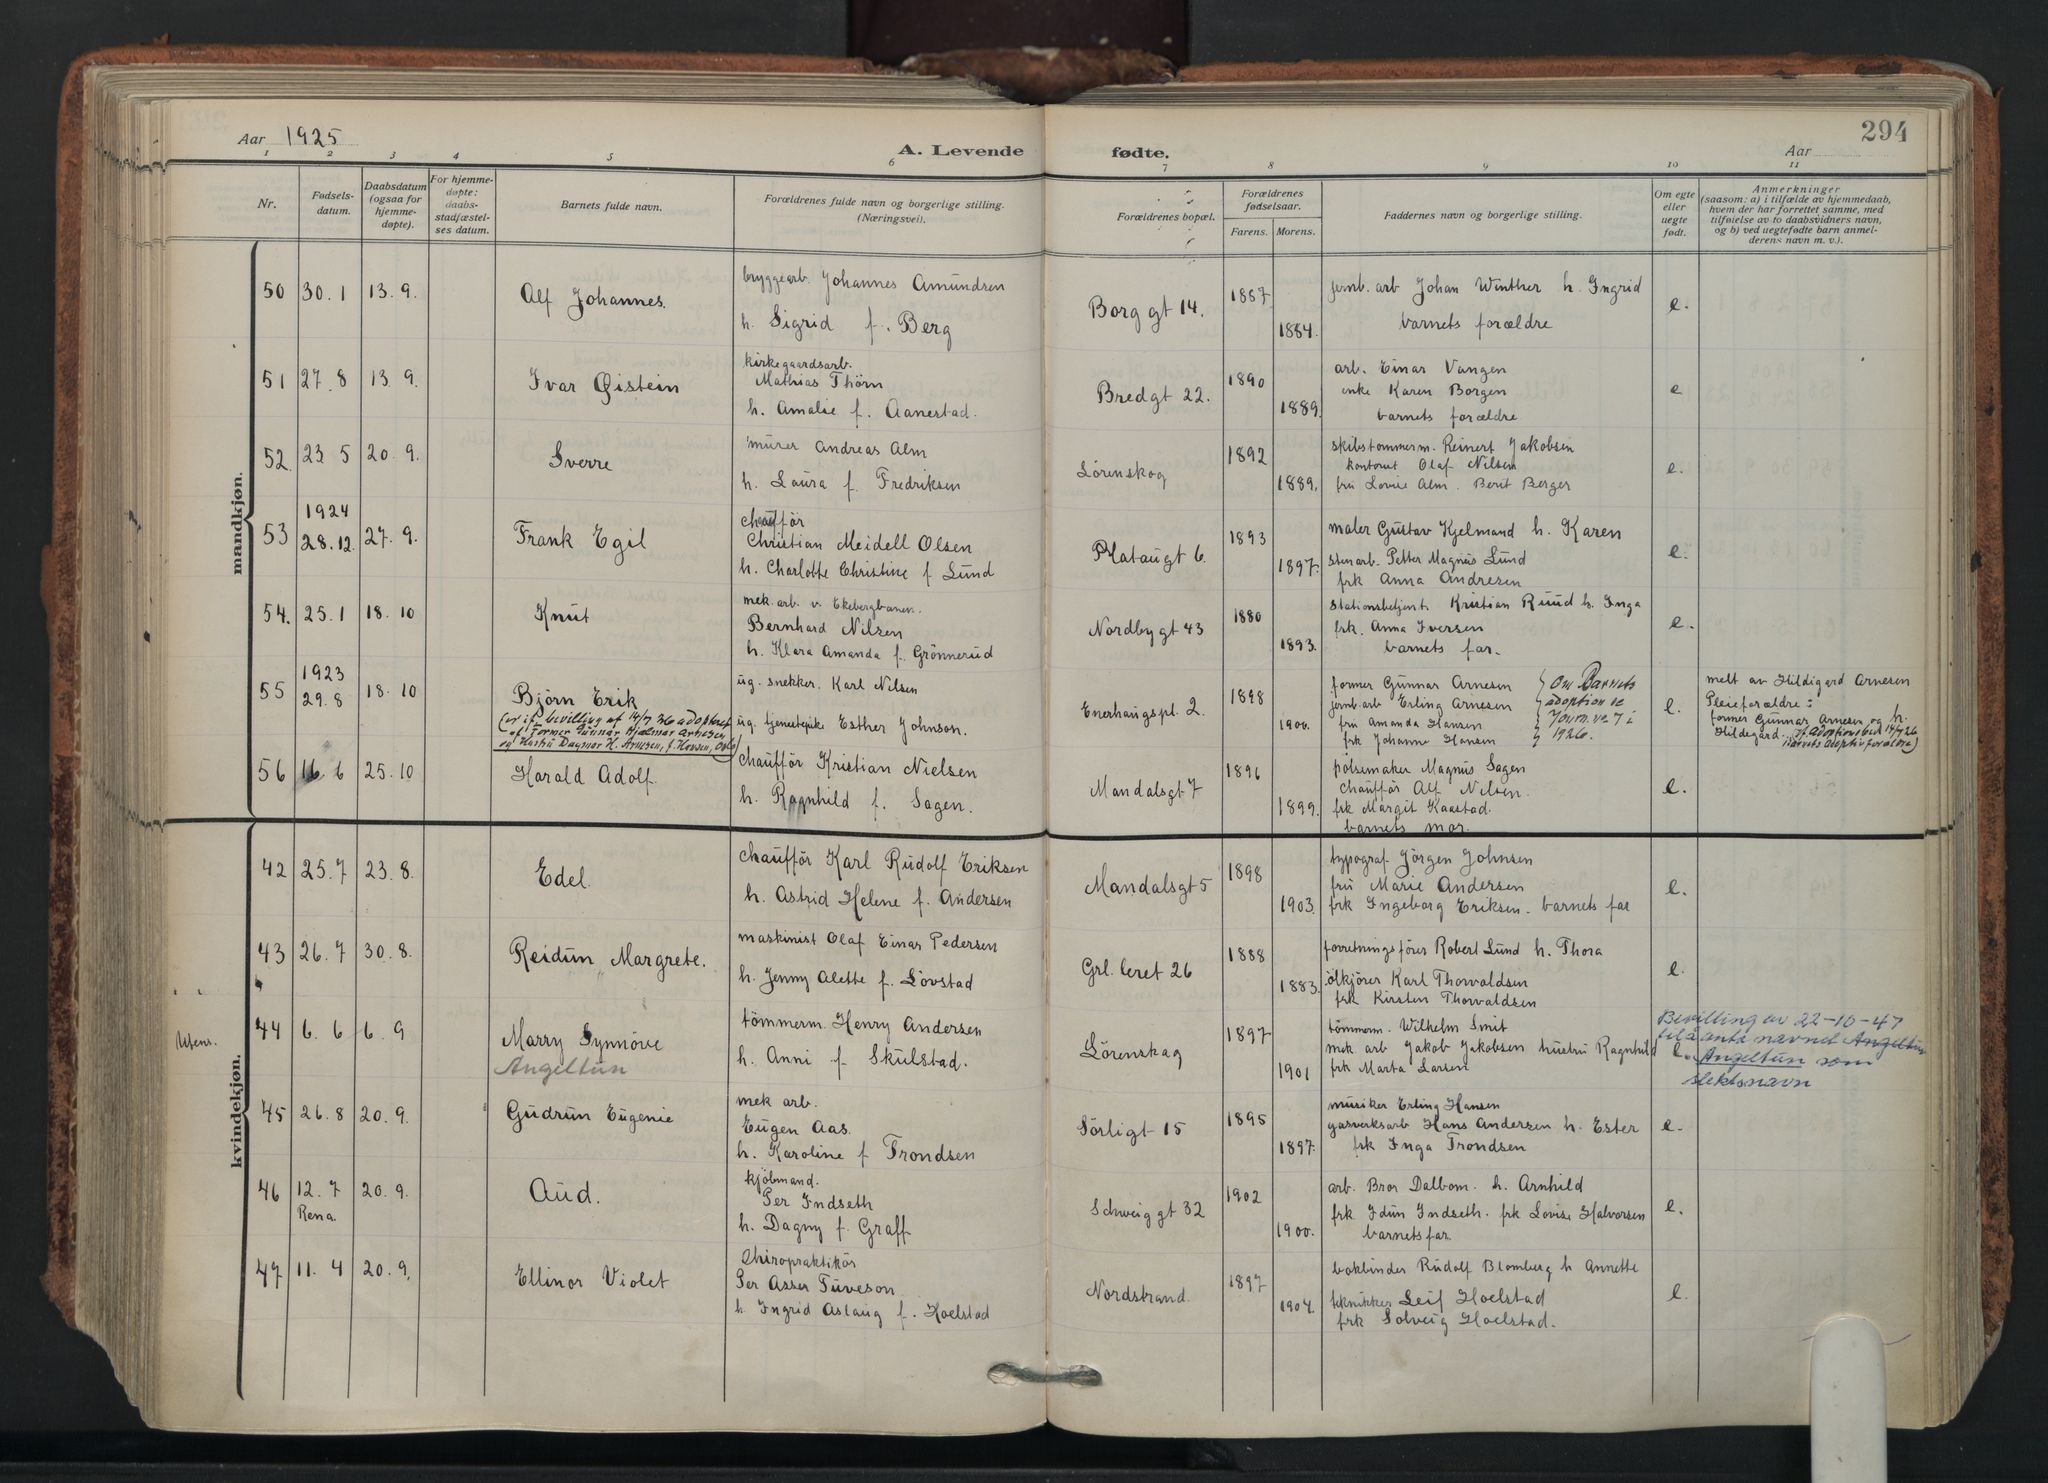 Aar 1925
A. Levende fødte.
Aar
294
1 2 3 4 5 6 7 8 9 10 11
Nr.
Fødsels-
datum.
Daabsdatum
(ogsaa for
hjemme-
døpte).
For hjemme-
døpte:
daabs-
stadfæstel-
ses datum.
Barnets fulde navn.
Forældrenes fulde navn og borgerlige stilling.
(Næringsvei).
Forældrenes bopæl.
Forældrenes
fødselsaar.
Farens. Morens.
Faddernes navn og borgerlige stilling.
Om egte
eller
uegte
født.
Anmerkninger
(saasom: a) i tilfælde av hjemmedaab,
hvem der har forrettet samme, med
tilføielse av to daabsvidners navn,
og b) ved uegtefødte barn anmel-
derens navn m. v.).
mandkjøn.
50 30.1 13.9. Alf Johannes.
bryggearb. Johannes Amundsen
h. Sigrid f. Berg
Borg gt 14. 1887 1884.
jernb. arb Johan Winther h. Ingrid
barnets forældre
e.
51 27.8 13 9. Ivar Øistein
kirkegaardsarb.
Mathias Thörn
h. Amalie f. Aanestad.
Bredgt 22. 1890 1889.
arb. Einar Vangen
enke Karen Borgen
barnets forældre
e
52. 23 5 20.9. Sverre
murer Andreas Alm
h. Laura f. Fredriksen
Lörenskog 1892 1889.
skibstommerm. Reinert Jakobsen
kontorist Olaf Nilsen
fru Lovise Alm. Berit Berger
e.
53 1924
28.12. 27.9. Frank Egil
chaufför
Christian Meidell Olsen
h. Charlotte Christine f Lund
Plataugt 6. 1893 1897.
maler Gustav Kjelmand h. Karen
stenarb. Petter Magnus Lund
frk Anna Andresen
e.
54. 25.1 18.10 Knut
mek. arb. v. Ekebergbanen.
Bernhard Nilsen
h. Klara Amanda f. Grönnerud
Nordbygt 43 1880 1893.
stationsbetjent. Kristian Ruud h. Inga
frk. Anna Iversen
barnets far.
e.
55 1923
29.8 18.10 Björn Erik
(er if. bevilling af 14/7 26 adopteret
af Former Gunnar Hjalmar Arnesen
og Hustru Dagmar H. Arnesen, f. Hovsen, Oslo)
ug. snekker. Karl Nilsen
ug. tjenestepike Esther Johnson.
Enerhaugspl. 2. 1898 1900.
former Gunnar Arnesen
jernb.arb Erling Arnesen
fru Amanda Hansen
frk Johanne Hansen
Om Barnets
adoption se
Journ. nr. 7 i
1926.
e.
melt av Hildigard Arnesen
Pleieforældre:
former Gunnar Arnesen og h.
Hildegard. If. adoptionsbev. 14/7 26
Barnets Adoptivforældre)
56 16 6 25.10 Harald Adolf.
chaufför Kristian Nielsen
h. Ragnhild f. Sagen.
Mandalsgt 7 1896 1899.
pölsemaker Magnus Sagen
chaufför Alf Nilsen.
frk Margit Kaastad.
barnets mor.
e.
kvindekjøn.
42 25.7 23.8. Edel.
chaufför Karl Rudolf Eriksen
h. Astrid Helene f. Andersen
Mandalsgt 5 1898 1903.
typograf Jörgen Johnsen
fru Marie Andersen
frk Ingeborg Eriksen. barnets far
e.
43 26.7 30.8. Reidun Margrete.
maskinist Olaf Einar Pedersen
h. Jenny Alette f. Lövstad
Grl. leret 26 1888 1883.
forretningsförer Robert Lund h. Thora
ölkjörer Karl Thorvaldsen
frk Kirsten Thorvaldsen
e.
Utens. 44 6.6 6.9 Marry Synnöve
Angeltun
tömmerm. Henry Andersen
h. Anni f Skulstad.
Lörenskog 1897 1901
tömmerm. Wilhelm Smit
mek. arb Jakob Jakobsen hustru Ragnhild
frk Marta Larsen
e.
Bevilling av 22-10-47
til å anta navnet Angeltun
Angeltun som
slektsnavn
45 26.8 20.9. Gudrun Eugenie
mek arb.
Eugen Aas.
h. Karoline f Trondsen
Sörligt 15 1895 1897.
musiker Erling Hansen
gasverksarb Hans Andersen h. Ester
frk Inga Trondsen
e.
46 12.7
Rena. 20.9. Aud.
kjöbmand.
Per Indseth
h. Dagny f. Graff
Schweiggt 32 1902 1900.
arb. Bror Dalbom. h. Arnhild
frk Idun Indseth. frk Lovise Halvorsen
barnets far.
e.
47 11.4 20.9. Ellinor Violet
Chiropraktikör
Per Asser Tuveson
h. Ingrid Aslaug f. Hoelstad
Nordstrand. 1897 1904.
bokbinder Rudolf Blomberg h Annette
tekniker Leif Hoelstad
frk Solveig Hoelstad.
e.